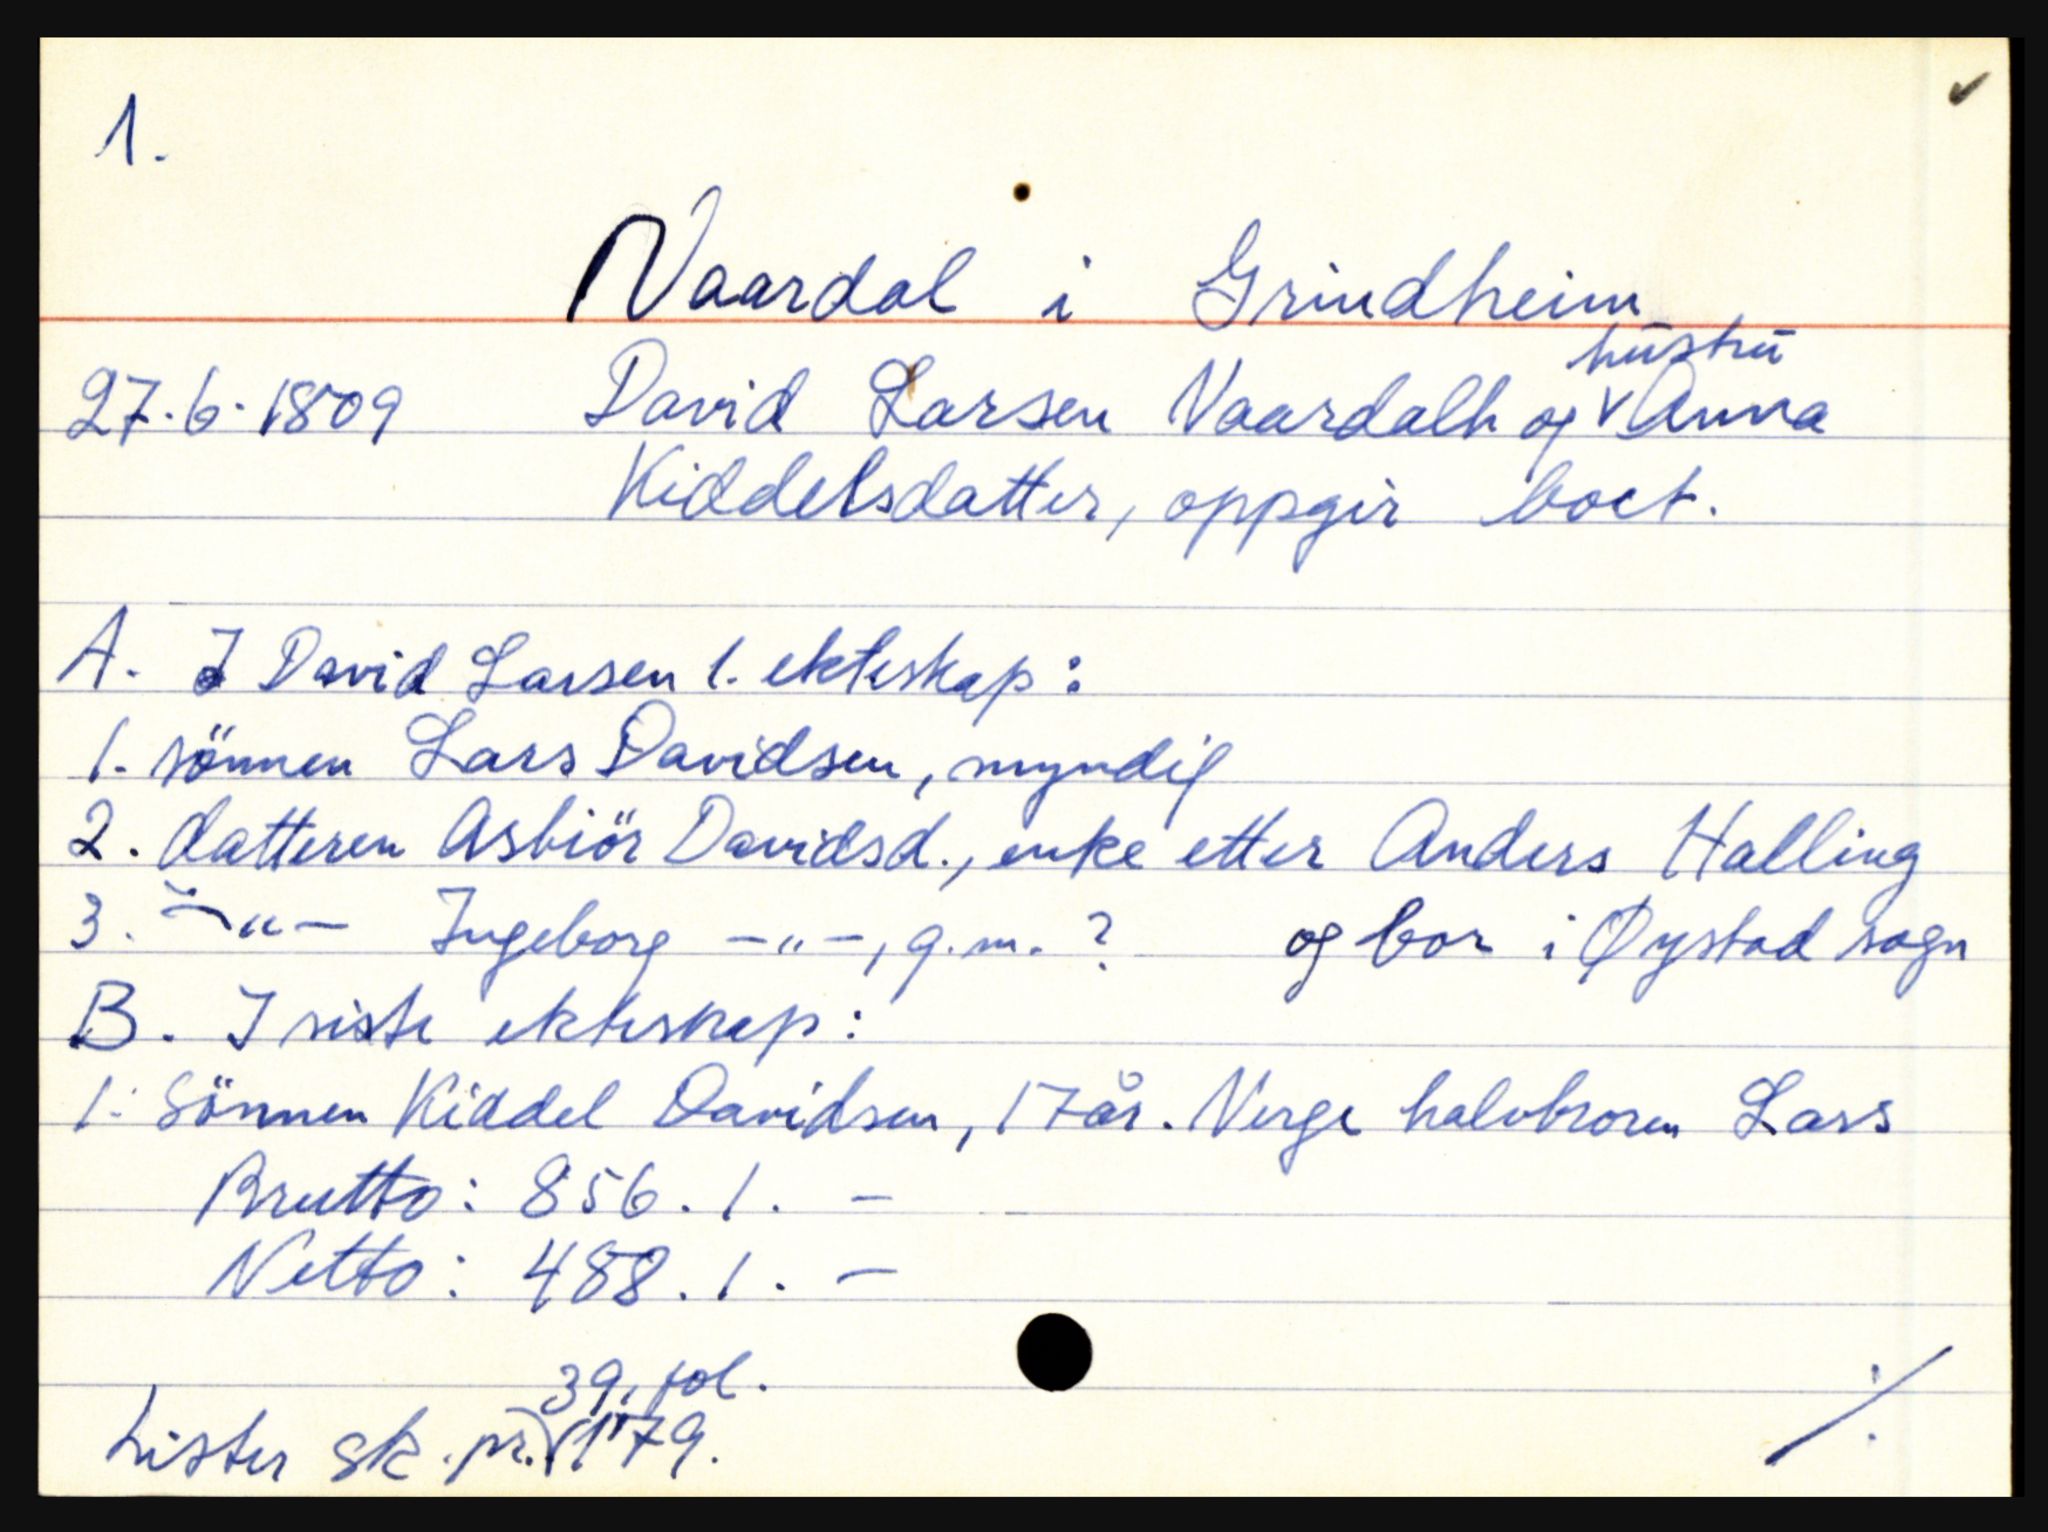 1.
Naardal i Grindheim
27.6.1809 David Larsen Naardalh og hustru Anna
Kiddelsdatter, oppgir boet.
A. I David Larsen 1. ekteskap:
1. sönnen Lars Davidsen, myndig
2. datteren Asbiör Davidsd., enke etter Anders Halling
3. —"— Ingeborg —"—, g.m. ? og bor i Øystad sogn
B. I siste ekteskap:
1. Sönnen Kiddel Davidsen, 17 år. Verge halvbroren Lars
Brutto: 856. 1. —
Netto: 488. 1. —
Lister sk. pr. 39, fol. 179.
./.